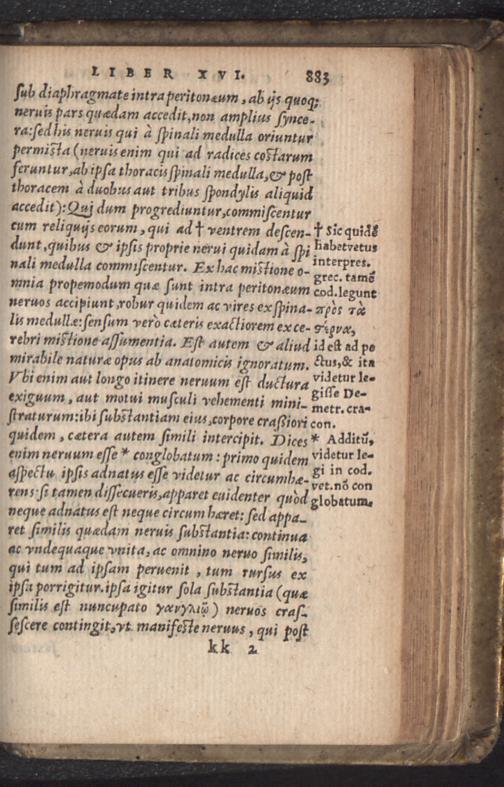 LIBER XVI. 883
sub diaphragmate intra peritonæum, ab ijs quoq;
neruis pars quædam accedit, non amplius synce-
ra: sed his neruis qui à spinali medulla oriuntur
permista (neruis enim qui ad radices costarum
feruntur, ab ipsa thoracis spinali medulla, & post
thoracem à duobus aut tribus spondylis aliquid
accedit): Qui dum progrediuntur, commiscentur
cum reliquijs eorum, qui ad † ventrem descen-
dunt, quibus & ipsis proprie nerui quidam à spi
nali medulla commiscentur. Ex hac mistione o-
mnia propemodum quæ sunt intra peritonæum
neruos accipiunt, robur quidem ac vires ex spina-
lis medullæ: sensum verò cæteris exactiorem ex ce-
rebri mistione assumentia. Est autem & aliud
mirabile naturæ opus ab anatomicis ignoratum.
Vbi enim aut longo itinere neruum est ductura
exiguum, aut motui musculi vehementi mini-
straturum: ibi substantiam eius, corpore crassiori
quidem, cætera autem simili intercipit. Dices
enim neruum esse * conglobatum: primo quidem
aspectu ipsis adnatus esse videtur ac circumhæ-
rens: si tamen dissecueris, apparet euidenter quòd
neque adnatus est neque circum hæret: sed appa-
ret similis quædam neruis substantia: continua
ac vndequaque vnita, ac omnino neruo similis,
qui tum ad ipsam peruenit, tum rursus ex
ipsa porrigitur. ipsa igitur sola substantia (quæ
similis est nuncupato γανγλιῷ) neruos cras-
sescere contingit, vt manifeste neruus, qui post
kk 2
† Sic quidē
habet vetus
interpres.
grec. tamē
cod. legunt
πρὸς τὰ
στέρνα,
id est ad po
ctus, & ita
videtur le-
gisse De-
metr. cra-
con.
* Additū,
videtur le-
gi in cod.
vet. nō con
globatum.